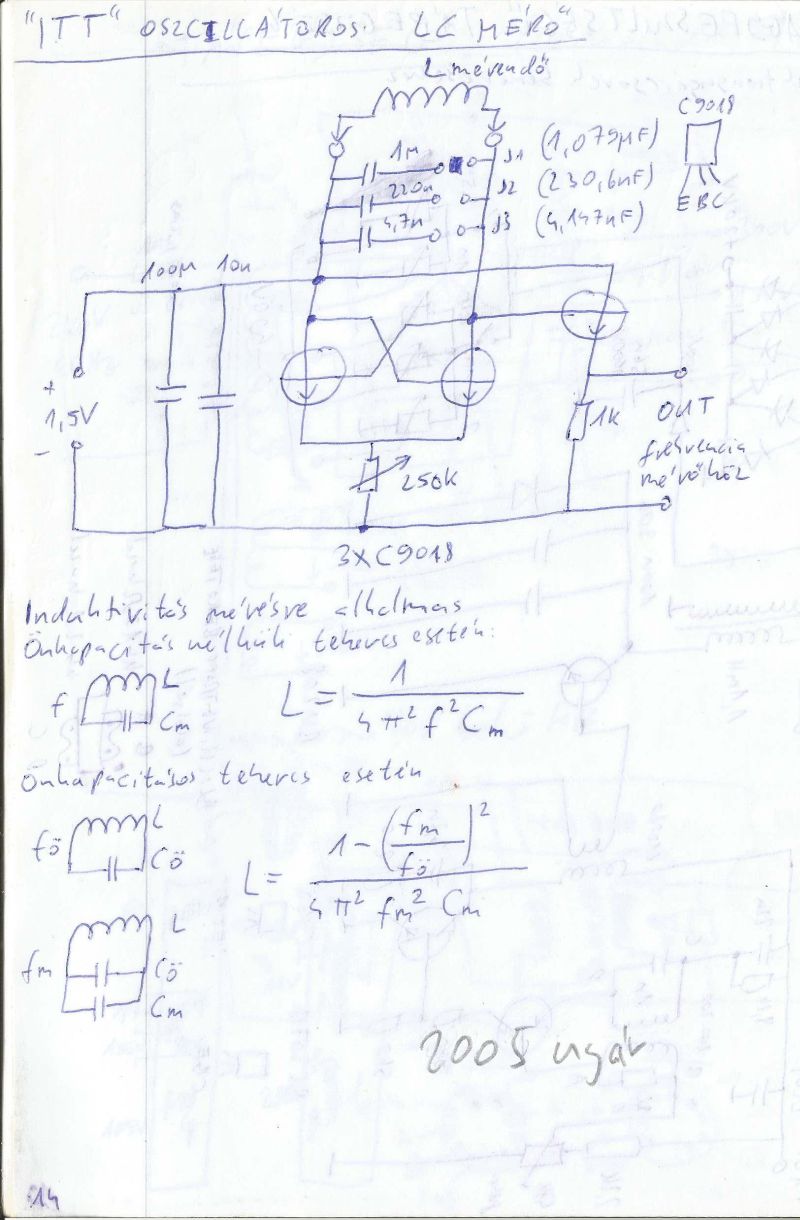 "ITT" OSZCILLÁTOROS LC MÉRŐ"
L mérendő
C9018
1µ J1 (1,079µF)
220n J2 (230,6nF)
4,7n J3 (4,147nF)
EBC
100µ 10n
+
1,5V
-
1k
OUT
frekvencia
mérőhöz
250k
3XC9018
Induktivitás mérésre alkalmas
Önkapacitás nélküli tekercs esetén:
f L Cm
L = 1 / 4π² f² Cm
Önkapacitásos tekercs esetén
fö L Cö
L = 1-(fm/fö)² / 4π² fm² Cm
fm L Cö Cm
2005 nyár
14